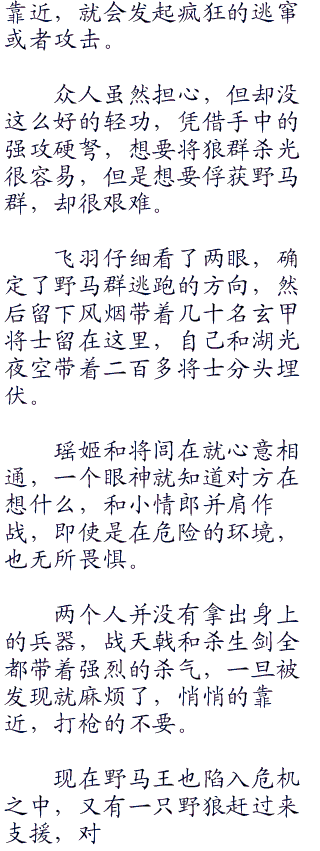 靠近，就会发起疯狂的逃窜
或者攻击。
众人虽然担心，但却没
这么好的轻功，凭借手中的
强攻硬弩，想要将狼群杀光
很容易，但是想要俘获野马
群，却很艰难。
飞羽仔细看了两眼，确
定了野马群逃跑的方向，然
后留下风烟带着几十名玄甲
将士留在这里，自己和湖光
夜空带着二百多将士分头埋
伏。
瑶姬和将闾在就心意相
通，一个眼神就知道对方在
想什么，和小情郎并肩作
战，即使是在危险的环境，
也无所畏惧。
两个人并没有拿出身上
的兵器，战天戟和杀生剑全
都带着强烈的杀气，一旦被
发现就麻烦了，悄悄的靠
近，打枪的不要。
现在野马王也陷入危机
之中，又有一只野狼赶过来
支援，对